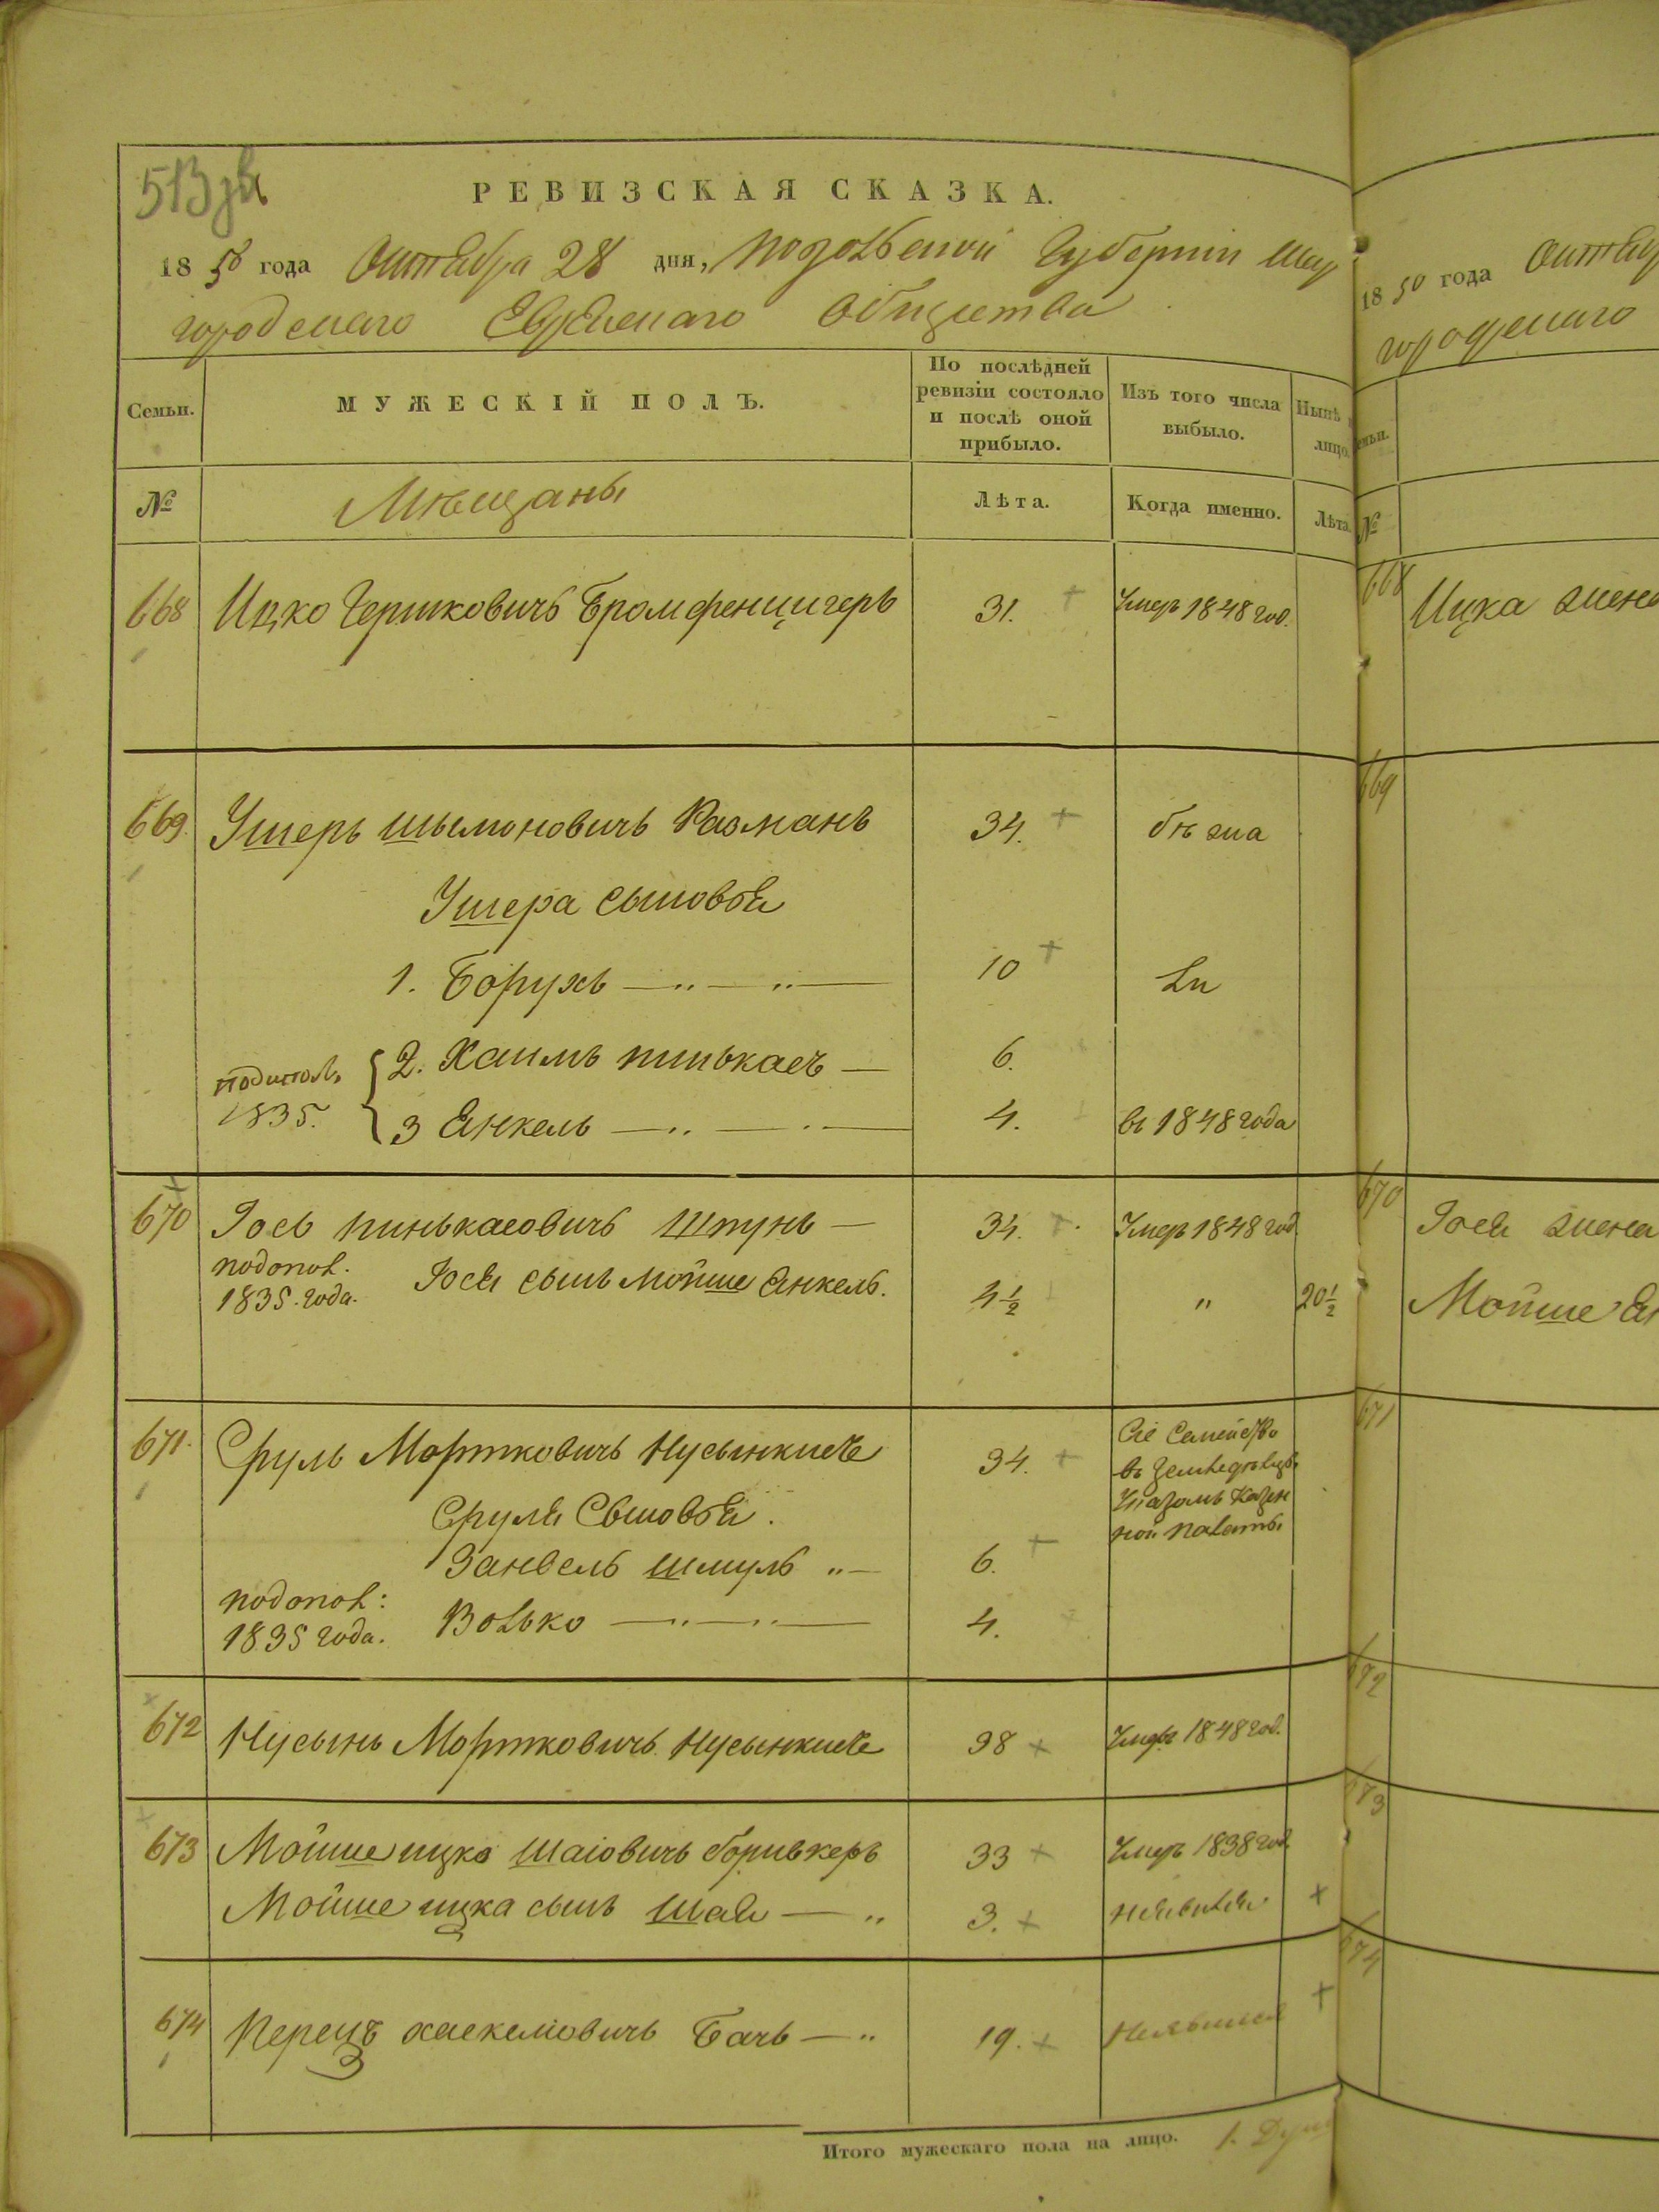 513 зв
РЕВИЗСКАЯ СКАЗКА.
1850 года Октября 28 дня, Подольской Губерніи Шар
городскаго Еврейскаго Общества
Семьи.
МУЖЕСКІЙ ПОЛЪ.
По послѣдней
ревизіи состояло
и послѣ оной
прибыло.
Изъ того числа
выбыло.
Нынѣ
лицо.
№
Мѣщаны
Лѣта.
Когда именно.
Лѣта.
668 Ицко Гершковичъ Бромфенцигеръ 31. Умеръ 1848 год.
669. Ушеръ Шымоновичъ 34. бѣжа
Ушера сыновья
1. Борухъ 10 Ли
подпол. 1835. { 2. Хаимъ Пинькасъ 6.
3 Янкель 4. въ 1848 года
670 Іось Пинькасовичъ Шпунь 34. Умеръ 1848 год
подопол. 1835. года. Іося сынъ Мойше Янкель. 4½ " 20½
671. Сруль Мортковичъ Нусынкисъ 34. Сіе Семейство
въ Земледѣльцы
Указомъ Казен
ной Палаты
Сруля Сыновья.
Занвель Шмуль 6.
подопол: 1835 года. Волько 4.
672 Нусынъ Мортковичъ Нусынкисъ 38 Умеръ 1848 год.
673 Мойше Ицко Шаіовичъ 33 Умеръ 1838 год.
Мойше Ицка сынъ Шая 3. неявился
674 Перецъ Хаскеліовичъ Бачъ 19. Неявился
Итого мужескаго пола на лицо. 1. Душ
1850 года Октяб
городскаго
емьи.
№
668 Ицка жена
669
670 Іося жена
Мойше Ян
671
672
673
674